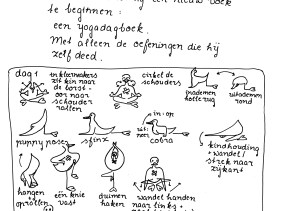 nieuw boek
te beginnen:
een yogadagboek.
Met alleen de oefeningen die hij
zelf deed.
dag 1
in kleermakers
zit kin naar
de borst -
oor naar
schouder
rollen
cirkel de
schouders
inademen
holle rug
uitademen
rond
puppy pose
sfinx
in - op
uit: neer
cobra
kindhouding
+ wandel /
strek naar
zijkant
hangen
+
oprollen
één knie
vast
duimen
haken
wandel handen
naar links +